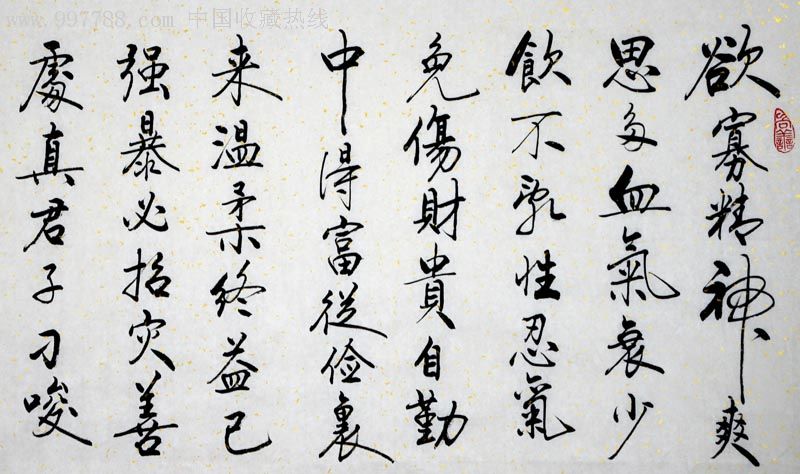 www.997788.com 中国收藏热线
欲寡精神爽
思多血氣衰少
飲不亂性忍氣
免傷財貴自勤
中得富從俭裏
来温柔終益己
强暴必招灾善
處真君子刁唆